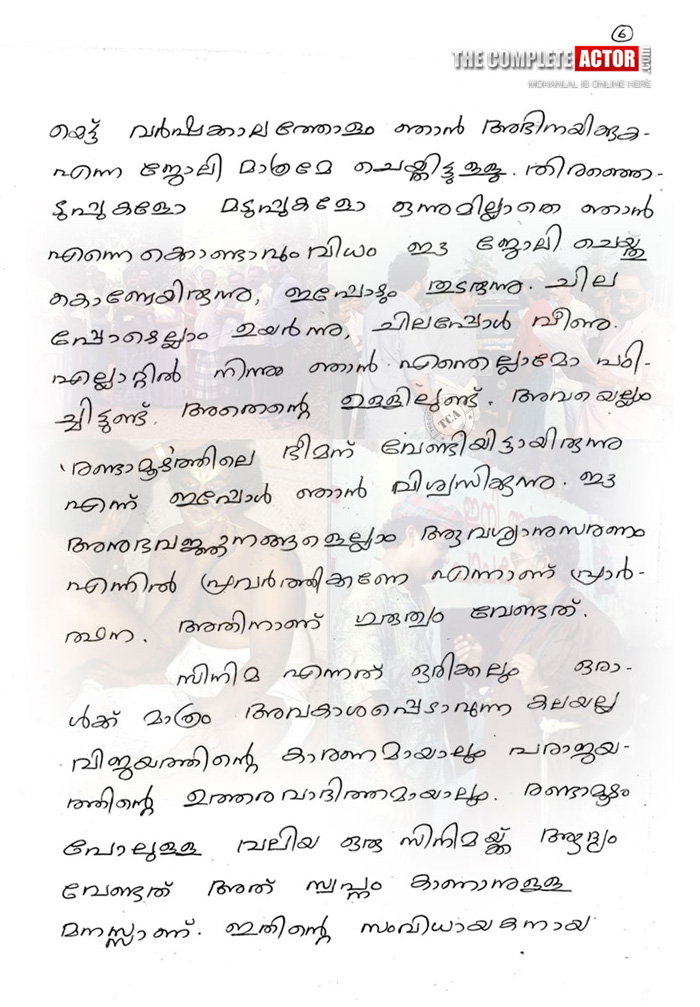 6
THE COMPLETE ACTOR.com
MOHANLAL IS ONLINE HERE
യെട്ട് വർഷക്കാലത്തോളം ഞാൻ അഭിനയിക്കുക-
എന്ന ജോലി മാത്രമേ ചെയ്തിട്ടുള്ളു. തിരഞ്ഞെ-
ടുപ്പുകളോ മടുപ്പുകളോ ഒന്നുമില്ലാതെ ഞാൻ
എന്നെ കൊണ്ടാവും വിധം ഈ ജോലി ചെയ്തു
കൊണ്ടേയിരുന്നു, ഇപ്പോഴും തുടരുന്നു. ചില
പ്പോഴെല്ലാം ഉയർന്നു, ചിലപ്പോൾ വീണു.
എല്ലാറ്റിൽ നിന്നും ഞാൻ എന്തെല്ലാമോ പഠി-
ച്ചിട്ടുണ്ട്. അതെന്റെ ഉള്ളിലുണ്ട്. അവയെല്ലാം
'രണ്ടാമൂഴത്തിലെ ഭീമന് വേണ്ടിയിട്ടായിരുന്നു
എന്ന് ഇപ്പോൾ ഞാൻ വിശ്വസിക്കുന്നു. ഈ
അനുഭവജ്ഞാനങ്ങളെല്ലാം ആവശ്യാനുസരണം
എന്നിൽ പ്രവർത്തിക്കണേ എന്നാണ് പ്രാർ-
ത്ഥന. അതിനാണ് ഗുരുത്വം വേണ്ടത്.
സിനിമ എന്നത് ഒരിക്കലും ഒരാ-
ൾക്ക് മാത്രം അവകാശപ്പെടാവുന്ന കലയല്ല
വിജയത്തിന്റെ കാരണമായാലും പരാജയ-
ത്തിന്റെ ഉത്തരവാദിത്തമായാലും. രണ്ടാമൂഴം
പോലുള്ള വലിയ ഒരു സിനിമയ്ക്ക് ആദ്യം
വേണ്ടത് അത് സ്വപ്നം കാണാനുള്ള
മനസ്സാണ്. ഇതിന്റെ സംവിധായകനായ